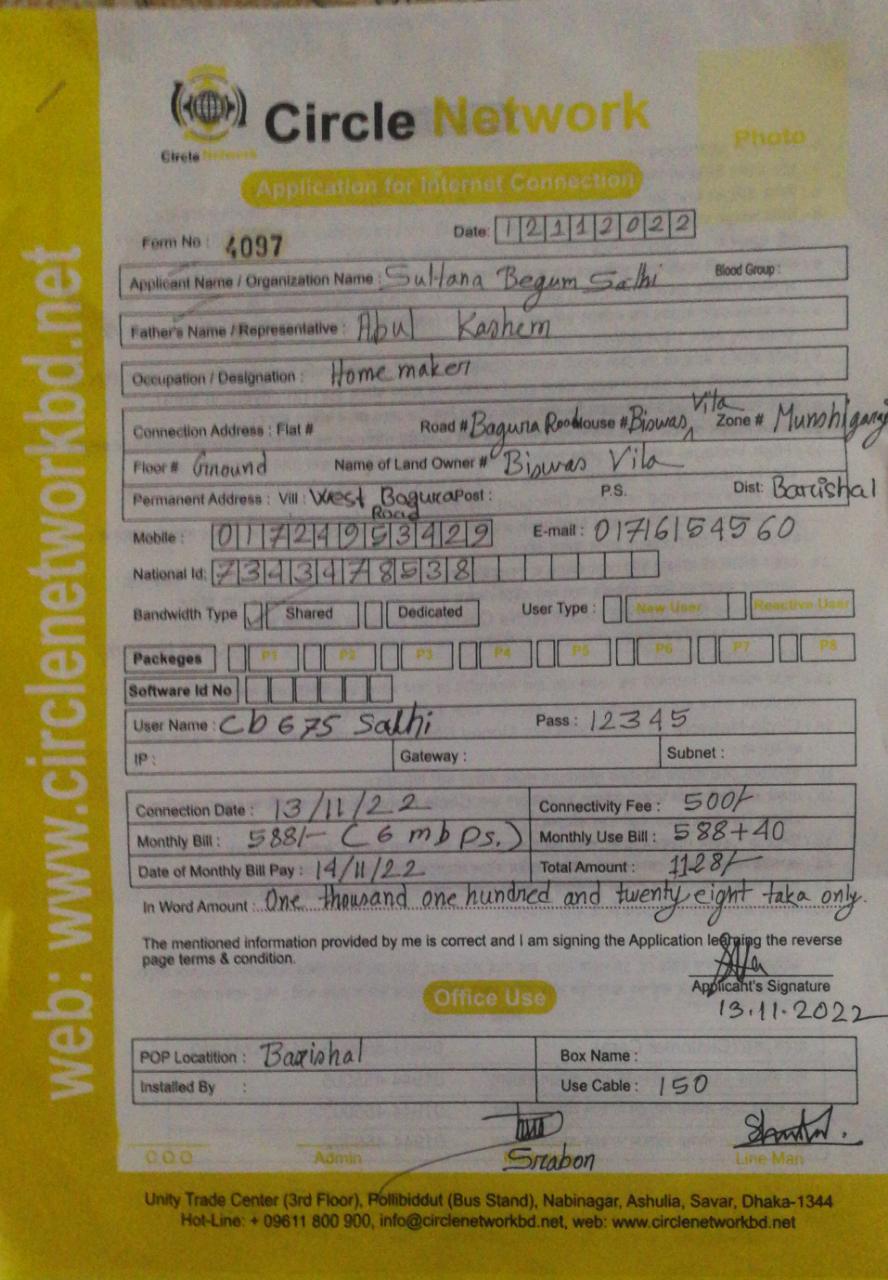 Circle Network
Circle Network
Photo
Application for Internet Connection
Form No : 4097 Date: 12112022
Applicant Name / Organization Name : Sultana Begum Sathi Blood Group :
Father's Name / Representative : Abul Kashem
Occupation / Designation : Home maker
Connection Address : Flat # Road # Bagura Road House # Biswas Vila Zone # Munshigaraj
Floor # Ground Name of Land Owner # Biswas Vila
Permanent Address : Vill : West Bagura Road Post : P.S. Dist: Barishal
Mobile : 01724953429 E-mail : 01716154560
National Id: 7343478538
Bandwidth Type ✓ Shared Dedicated User Type : New User Reactive User
Packeges P1 P2 P3 P4 P5 P6 P7 P8
Software Id No
User Name : Cb675 Sathi Pass : 12345
IP : Gateway : Subnet :
Connection Date : 13/11/22 Connectivity Fee : 500/-
Monthly Bill : 588/- (6 mbps.) Monthly Use Bill : 588+40
Date of Monthly Bill Pay : 14/11/22 Total Amount : 1128/-
In Word Amount : One thousand one hundred and twenty eight taka only.
The mentioned information provided by me is correct and I am signing the Application learning the reverse
page terms & condition.
Applicant's Signature
13.11.2022
Office Use
POP Locatition : Barishal Box Name :
Installed By : Use Cable : 150
Srabon
C.O.O Admin Line Man
Unity Trade Center (3rd Floor), Pollibiddut (Bus Stand), Nabinagar, Ashulia, Savar, Dhaka-1344
Hot-Line: + 09611 800 900, info@circlenetworkbd.net, web: www.circlenetworkbd.net
web: www.circlenetworkbd.net